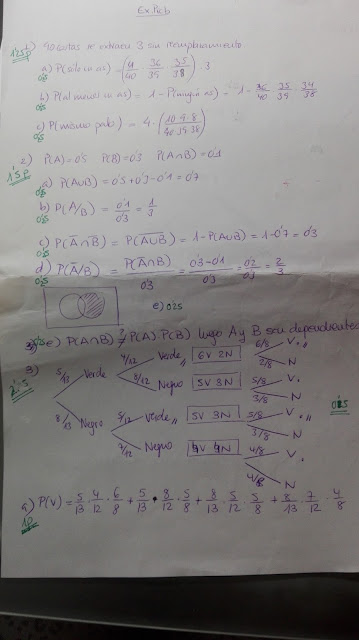 Ex Prob
1'25p 1) 40 cartas se extraen 3 sin reemplazamiento
0'5 a) P(solo un as) = (4/40 · 36/39 · 35/38) · 3
0'5 b) P(al menos un as) = 1 - P(ningún as) = 1 - 36/40 · 35/39 · 34/38
c) P(mismo palo) = 4 · (10·9·8 / 40·39·38)
2) P(A) = 0'5 P(B) = 0'3 P(A∩B) = 0'1
a) P(A∪B) = 0'5 + 0'3 - 0'1 = 0'7
b) P(A/B) = 0'1/0'3 = 1/3
c) P(A̅∩B̅) = P(A̅∪̅B̅) = 1 - P(A∪B) = 1 - 0'7 = 0'3
d) P(A̅/B) = P(A̅∩B)/0'3 = 0'3-0'1/0'3 = 0'2/0'3 = 2/3
e) 0'25
e) P(A∩B) ≠ P(A)·P(B) luego A y B son dependientes
3)
5/13 Verde 4/12 Verde,, 6V 2N 6/8 V,,
2/8 N
8/12 Negro 5V 3N 5/8 V,
3/8 N
8/13 Negro 5/12 Verde,, 5V 3N 5/8 V,,
3/8 N
7/12 Negro 4V 4N 4/8 V,
4/8 N
a) P(V) = 5/13 · 4/12 · 6/8 + 5/13 · 8/12 · 5/8 + 8/13 · 5/12 · 5/8 + 8/13 · 7/12 · 4/8
1p